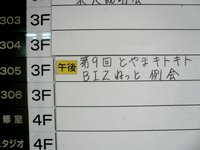 303 3F
304 3F
305 3F 午後 第9回 とやまキトキト
BIZねっと 例会
306 3F
修室 4F
スタジオ 4F